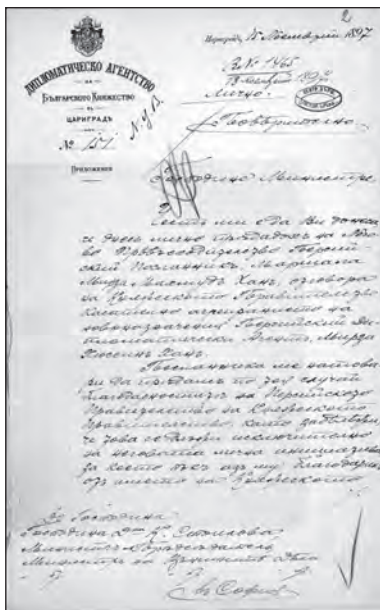 2
ДИПЛОМАТИЧЕСКО АГЕНТСТВО
НА
БЪЛГАРСКОТО КНЯЖЕСТВО
въ
ЦАРИГРАДЪ
№ 151
Приложения
Цариградъ, 15 Ноемврий 1897
Вх № 1465
18 Ноемврий 1897
Лично.
Господине Министре,
Честь ми е да Ви донеса
че днесь лично предадохъ на Него-
во Превъзходителство Персий-
ский Посланникъ, Маршала
Мирза Махмудъ Ханъ, отговора
на Българското Правителство
касателно агреирането на
новоназначений Персийский Ди-
пломатически Агентъ, Мирза
Хюсеинъ Ханъ.
Посланникътъ ме натова-
ри да предамъ по тоя случай
благодарностьта на Персийското
Правителство на Българското
Правителство, като
че това се дължи исключително
на неговата лична инициатива
за което пъкъ азъ му благодарихъ
отъ името на Българското
Господина
Господина Д-ръ К. Стоилова
Министръ Председатель
Министръ на Външнитѣ Дѣла
въ София